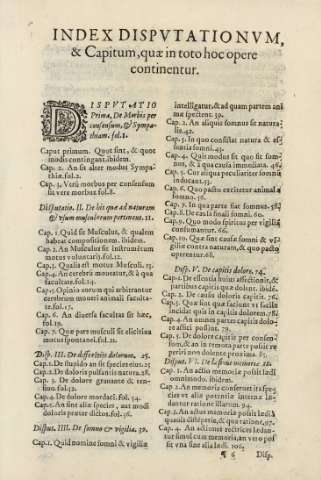 INDEX DISPVTATIONVM,
& Capitum, quæ in toto hoc opere
continentur.
DISPVTATIO
Prima, De Morbis per
consensum, & Sympa-
thiam. fol. 1.
Caput primum. Quot sint, & quot
modis contingant. ibidem.
Cap. 2. An sit alter modus Sympa-
thiæ. fol. 2.
Cap. 3. Vtrũ morbus per consensum
sit vere morbus fol. 8.
Disputatio. II. De his quæ ad naturam
& vsum musculorum pertinent. 11.
Cap. 1. Quid sit Musculus, & qualem
habeat compositionem. ibidem.
Cap. 2. An Musculus sit instrumẽtum
motus voluntarij. fol. 12.
Cap. 3. Qualis est motus Musculi. 13.
Cap. 4. An cerebrũ moueatur, & à qua
facultate. fol. 14.
Cap. 5. Opinio eorum qui arbitrantur
cerebrum moueri animali faculta-
te. fol. 17.
Cap. 6. An diuersa facultas sit hæc,
fol. 19.
Cap. 7. Quæ pars musculi sit elicitiua
motus spontanei. fol. 21.
Disp. III. De differẽtiis dolorum. 25.
Cap. 1. De stupido an sit species eius. 25
Cap. 2. De doloris pulsatiuis natura. 28.
Cap. 3. De dolore grauante & ten-
sino. fol. 32.
Cap. 4. De dolore mordaci. fol. 34.
Cap. 5. An sint aliæ species, aut modi
doloris præter dictos. fol. 36.
Disput. IIII. De somno & vigilia. 39.
Cap. 1. Quid nomine somni & vigiliæ
intelligatur, & ad quam partem ani
mæ spectent. 39.
Cap. 2. An aliquis somnus sit natura-
lis. 42.
Cap. 3. In quo consistat natura &
somni. 43.
Cap. 4. Quis modus sit quo sit som-
nus, & à qua causa immediata. 46.
Cap. 5. Cur aliqua peculiariter somnũ
inducant. 53.
Cap. 6. Quo pacto excitetur animal à
somno. 56.
Cap. 7. In qua parte fiat somnus. 58.
Cap. 8. De causa finali somni. 60.
Cap. 9. Quo modo spiritus per vigiliã
consumantur. 66.
Cap. 10. Quæ sint causæ somni & vi-
giliæ contra naturam, & quo pacto
operentur. 68.
Disp. V. De capitis dolore. 74.
Cap. 1. De essentia huius affectionis, &
partibus capitis quæ dolent. ibidẽ.
Cap. 2. De causa doloris capitis. 76.
Cap. 3. Quæ sint quæ faciunt vt facile
incidat quis in capitis dolorem. 78.
Cap. 4. An omnes partes capitis dolo-
re affici possint. 79.
Cap. 5. De dolore capitis per consen-
sum, & an in remota parte possit re
periri non dolente proxima. 85.
Disput. VI. De læsione memoriæ. 88.
Cap. 1. An actio memoriæ possit lædi
omnimodo. ibidem.
Cap. 2. An memoria conseruet ita spe-
cies vt aliæ potentiæ internæ in-
dantur ratione illarum. 94.
Cap. 3. An actus memoriæ possit lædi à
qualibet distẽperie, & qua ratione. 97.
Cap. 4. An actiones rectrices lædan-
tur simul cum memoria, an vero pos
sit vna sine alia lædi. 106.
¶ 6 Disp.